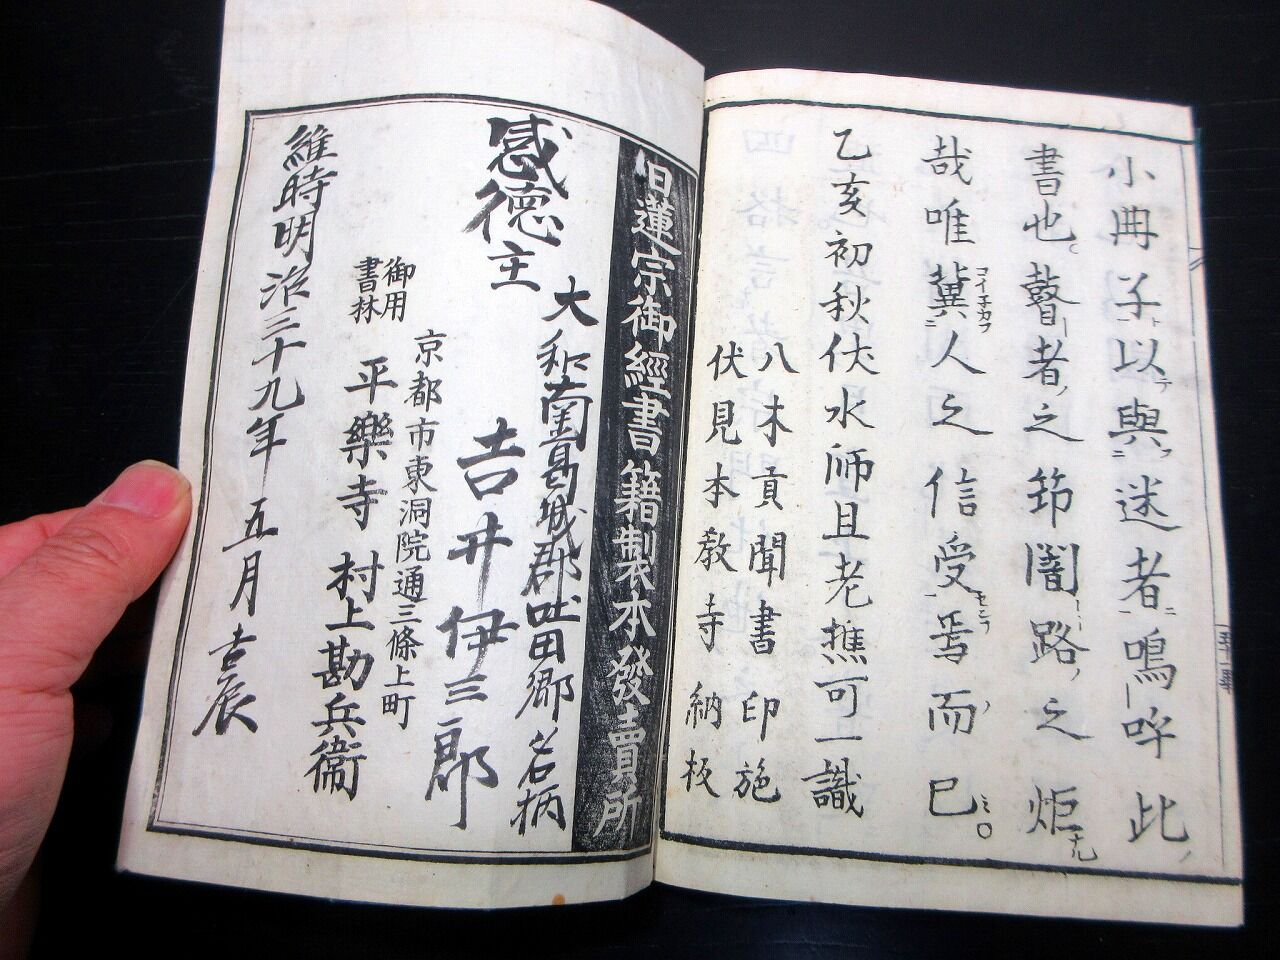 小冊子以與迷者嗚呼此
書也瞽者之筇闇路之炬
哉唯冀人之信受焉而已
乙亥初秋伏水師且老樵可一識
八木貢聞書印施
伏見本教寺納板
日蓮宗御經書籍製本發賣所
大和南葛城郡吐田郷名柄
感德主
吉井伊三郎
京都市東洞院通三條上町
御用
書林
平樂寺 村上勘兵衞
維時明治三十九年五月吉辰